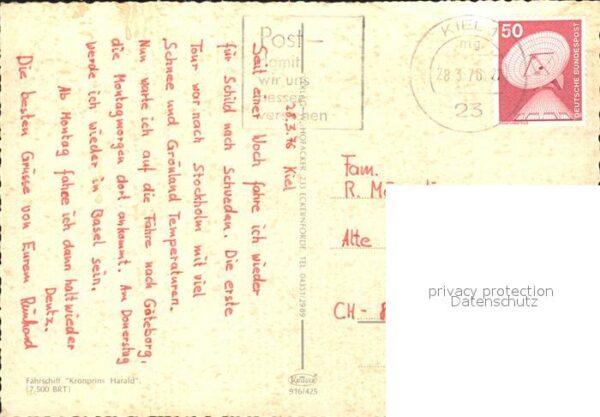 28.3.76 Kiel
Seit einer Woch fahre ich wieder
für Schild nach Schweden. Die erste
Tour war nach Stockholm mit viel
Schnee und Grönland Temperaturen.
Nun warte ich auf die Fähre nach Göteborg,
die Montagmorgen dort ankommt. Am Donerstag
werde ich wieder in Basel sein.
Ab Montag fahre ich dann halt wieder
Deutz.
Die besten Grüsse von Eurem
Fährschiff "Kronprins Harald"
(7.500 BRT)
HOFACKER, 233 ECKERNFÖRDE, TEL. 04351/2989
916/425
Post
damit
wir uns
besser
verstehen
KIEL
mg
28.3.76
23
50
DEUTSCHE BUNDESPOST
Fam.
R.
Alte
CH-8
privacy protection
Datenschutz